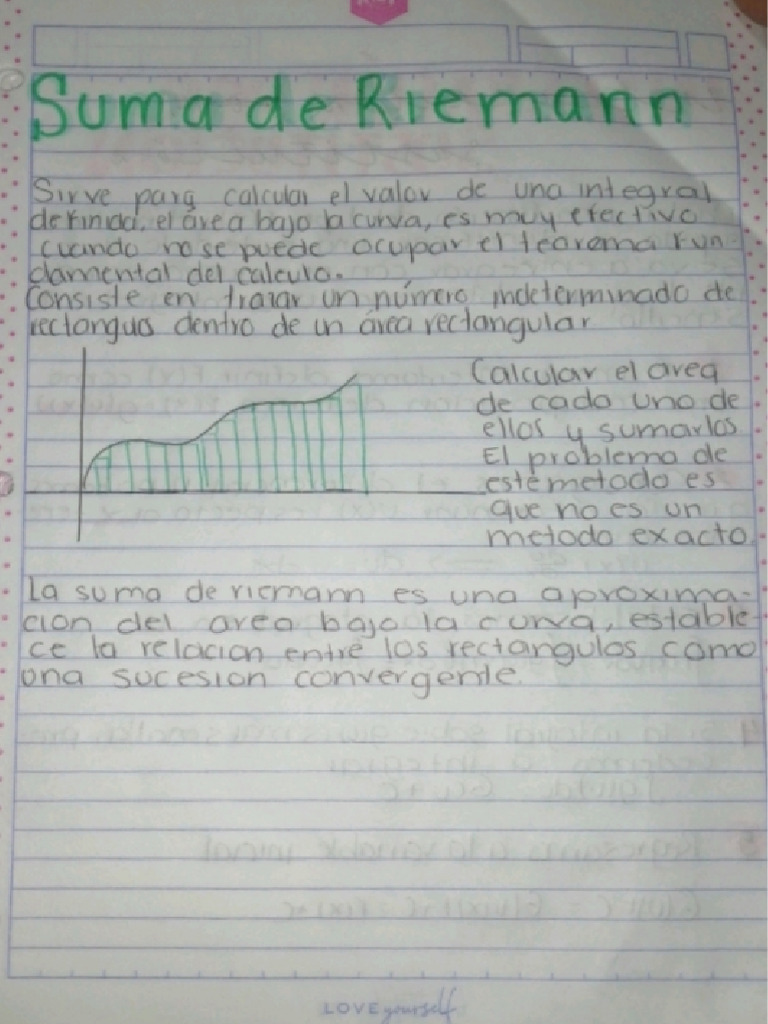 Suma de Riemann
Sirve para calcular el valor de una integral
definida, el área bajo la curva, es muy efectivo
cuando no se puede ocupar el teorema fun-
damental del calculo.
Consiste en trazar un número indeterminado de
rectangulos dentro de un área rectangular
Calcular el area
de cada uno de
ellos y sumarlos
El problema de
este metodo es
que no es un
metodo exacto.
La suma de riemann es una aproxima-
cion del area bajo la curva, estable-
ce la relacion entre los rectangulos como
una sucesion convergente.
LOVE yourself